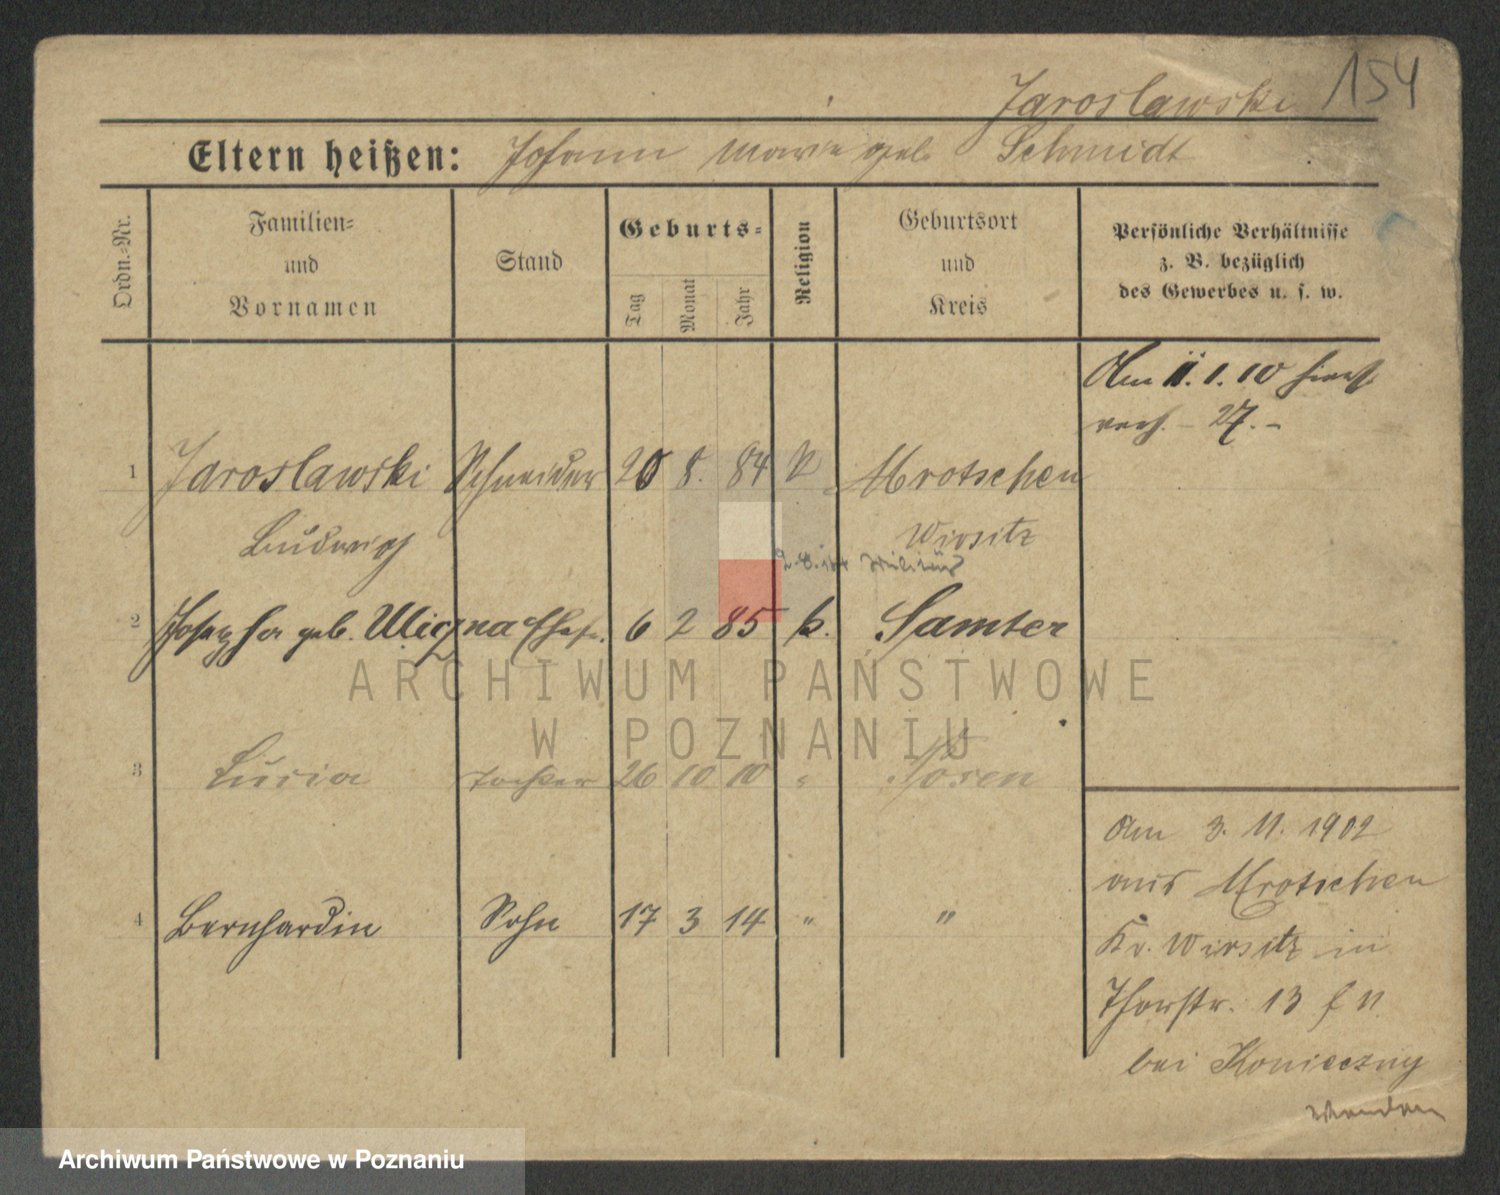 154
Jaroslawski
Eltern heißen: Johann Maria geb. Schmidt
Ordn.-Nr.
Familien-
und
Vornamen
Stand
Geburts-
Tag
Monat
Jahr
Religion
Geburtsort
und
Kreis
Persönliche Verhältnisse
z. B. bezüglich
des Gewerbes u. s. w.
Am 11.1.10
27.-
1 Jaroslawski Schneider 20 8. 84 K Mrotschen
Ludwig Wirsitz
Militär
2 Josepha geb. 6 2 85 k. Samter
ARCHIWUM PAŃSTWOWE
W POZNANIU
3 Luzia Tochter 26 10 10 " Posen
4 Bernhardin Sohn 17 3 14 " "
Am 3. 11. 1902
aus Mrotschen
Kr. Wirsitz in
Thorstr. 13
bei Konieczny
Archiwum Państwowe w Poznaniu